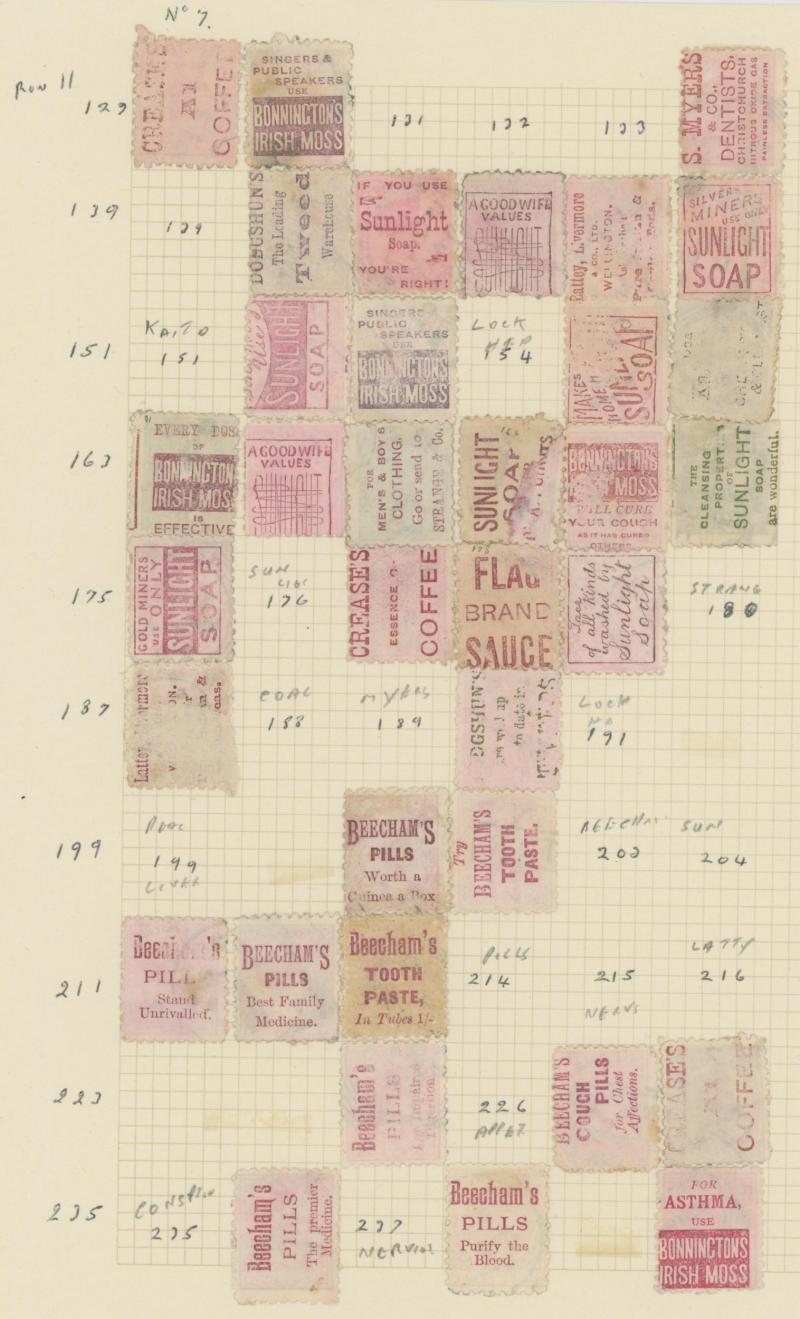 No 7.
Row 11
129
CREASE'S
A1
COFFEE
SINGERS &
PUBLIC
SPEAKERS
USE
BONNINGTONS
IRISH MOSS
131
132
133
S. MYERS
& CO.,
DENTISTS,
CHRISTCHURCH
NITROUS OXIDE GAS
PAINLESS EXTRACTION
139
139
The Leading
Tweed
Warehouse
IF YOU USE
Sunlight
Soap.
YOU'RE
RIGHT!
A GOOD WIFE
VALUES
Lattey, Livermore
& CO., LTD.
WELLINGTON.
SILVER
MINERS
USE ONLY
SUNLIGHT
SOAP
151
151
SUNLIGHT
SOAP
SINGERS
PUBLIC
SPEAKERS
USE
BONNINGTONS
IRISH MOSS
LOCK
154
MAKES
HOME
SOAP
163
EVERY DOS
OF
BONNINGTON
IRISH MOS
IS
EFFECTIVE
A GOOD WIFE
VALUES
FOR
MEN'S & BOY'S
CLOTHING,
Go or send to
STRANGE & Co.
SUNLIGHT
SOAP
BONNINGTONS
MOSS
WILL CURE
YOUR COUGH
AS IT HAS CURED
OTHERS
THE
CLEANSING
PROPERT
OF
SUNLIGHT
SOAP
are wonderful.
175
GOLD MINERS
USE ONLY
SUNLIGHT
SOAP
SUN
176
CREASE'S
ESSENCE O
COFFEE
FLAG
BRAND
SAUCE
of all kinds
washed by
Sunlight
Soap
STRANG
180
187
COAL
188
MYERS
189
to date in
LOCK
191
199
199
BEECHAM'S
PILLS
Worth a
Guinea a Box
Try
BEECHAM'S
TOOTH
PASTE.
BEECHAM
203
SUN
204
211
Beecham's
PILL
Stand
Unrivalled.
BEECHAM'S
PILLS
Best Family
Medicine.
Beecham's
TOOTH
PASTE,
In Tubes 1/-
PILLS
214
215
NERVS
LATTY
216
223
Beecham's
PILLS
226
BEECHAM'S
COUGH
PILLS
for Chest
Affections.
CREASE'S
A1
COFFEE
235
235
Beecham's
PILLS
The premier
Medicine.
237
Beecham's
PILLS
Purify the
Blood.
FOR
ASTHMA,
USE
BONNINGTONS
IRISH MOSS